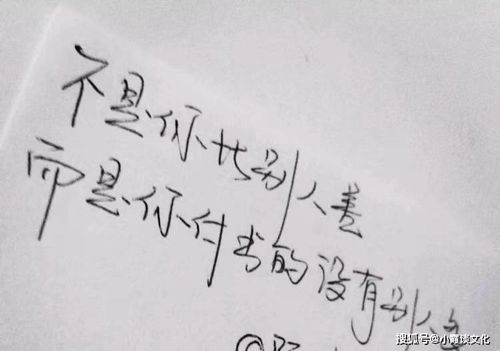 不是你比别人差
而是你付出的没有别人多
搜狐号@小霞谈文化